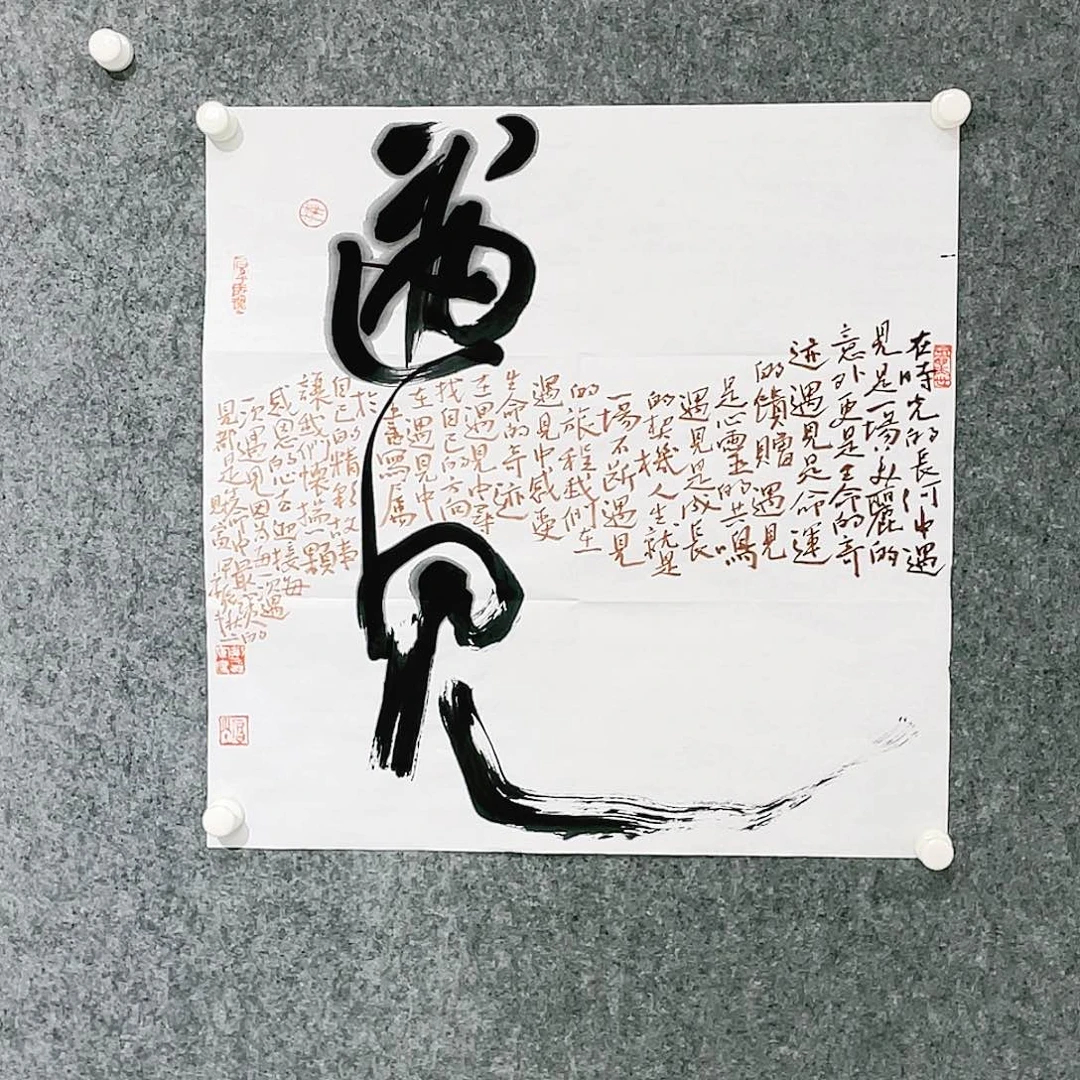 遇見
在時光的長河中遇
見是一場美麗的
意外更是生命的奇
迹遇見是命運
的饋贈遇見
是心靈的共鳴
遇見是成長
的契機人生就是
一場不斷遇見
的旅程我們在
遇見中感受
生命的奇迹
在遇見中尋
找自己的方向
在遇見中
書寫屬
於
自己的精彩故事
讓我們懷揣一顆
感恩的心去迎接每
一次遇見因爲每一次遇
見都是
財富